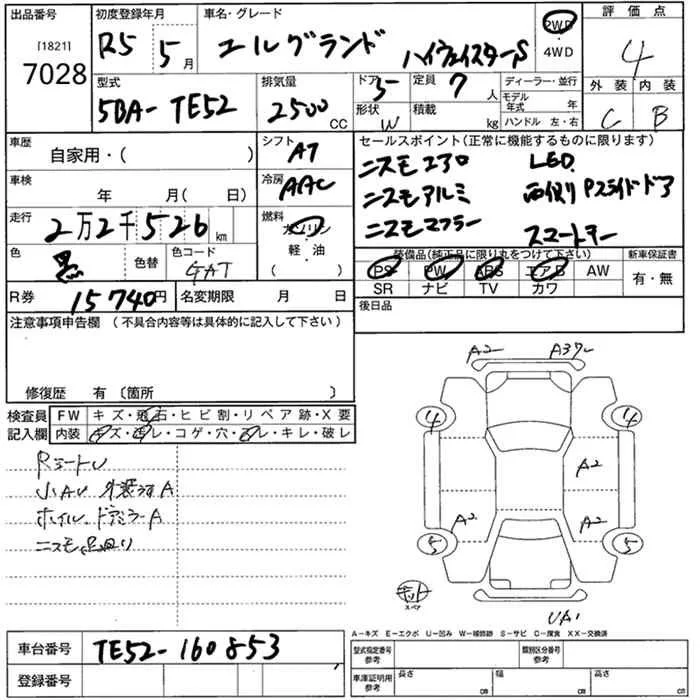 出品番号 初度登録年月 車名・グレード 評価点
[1821]
7028
R5 5月 エルグランド ハイウェイスターS 2WD・4WD 4
型式 排気量 ドア 定員 ディーラー・並行 外装 内装
5BA-TE52 2500CC 5 7人 モデル年式 年 C B
形状 W 積載 kg ハンドル 左・右
車歴 自家用・( ) シフト AT
セールスポイント(正常に機能するものに限ります)
ニスモエアロ LED
ニスモアルミ 両側Pスライドドア
ニスモマフラー スマートキー
車検 年 月( 日) 冷房 AAC
走行 2万2千526km 燃料 ガソリン 軽・油
色 黒 色替 色コード GAT
装備品(純正品に限り丸をつけて下さい) 新車保証書
PS PW ABS エアB AW 有・無
SR ナビ TV カワ
R券 15740円 名変期限 月 日
後日品
注意事項申告欄(不具合内容等は具体的に記入して下さい)
修復歴 有〔箇所 〕
検査員記入欄 FW キズ・飛石・ヒビ割・リペア跡・X要
内装 キズ・汚レ・コゲ・穴・スレ・キレ・破レ
小AU 外装ウスA
ホイル、ドアミラーA
ニスモ足回り
A2
4 4
A2
A2 A2
5 5
キット
スペア
UA1
A-キズ E-エクボ U-凹み W-補修跡 S-サビ C-腐食 XX-交換済
車台番号 TE52-160853
登録番号
型式指定番号 参考 類別区分番号 参考
車庫証明用 参考 長さ cm 幅 cm 高さ cm